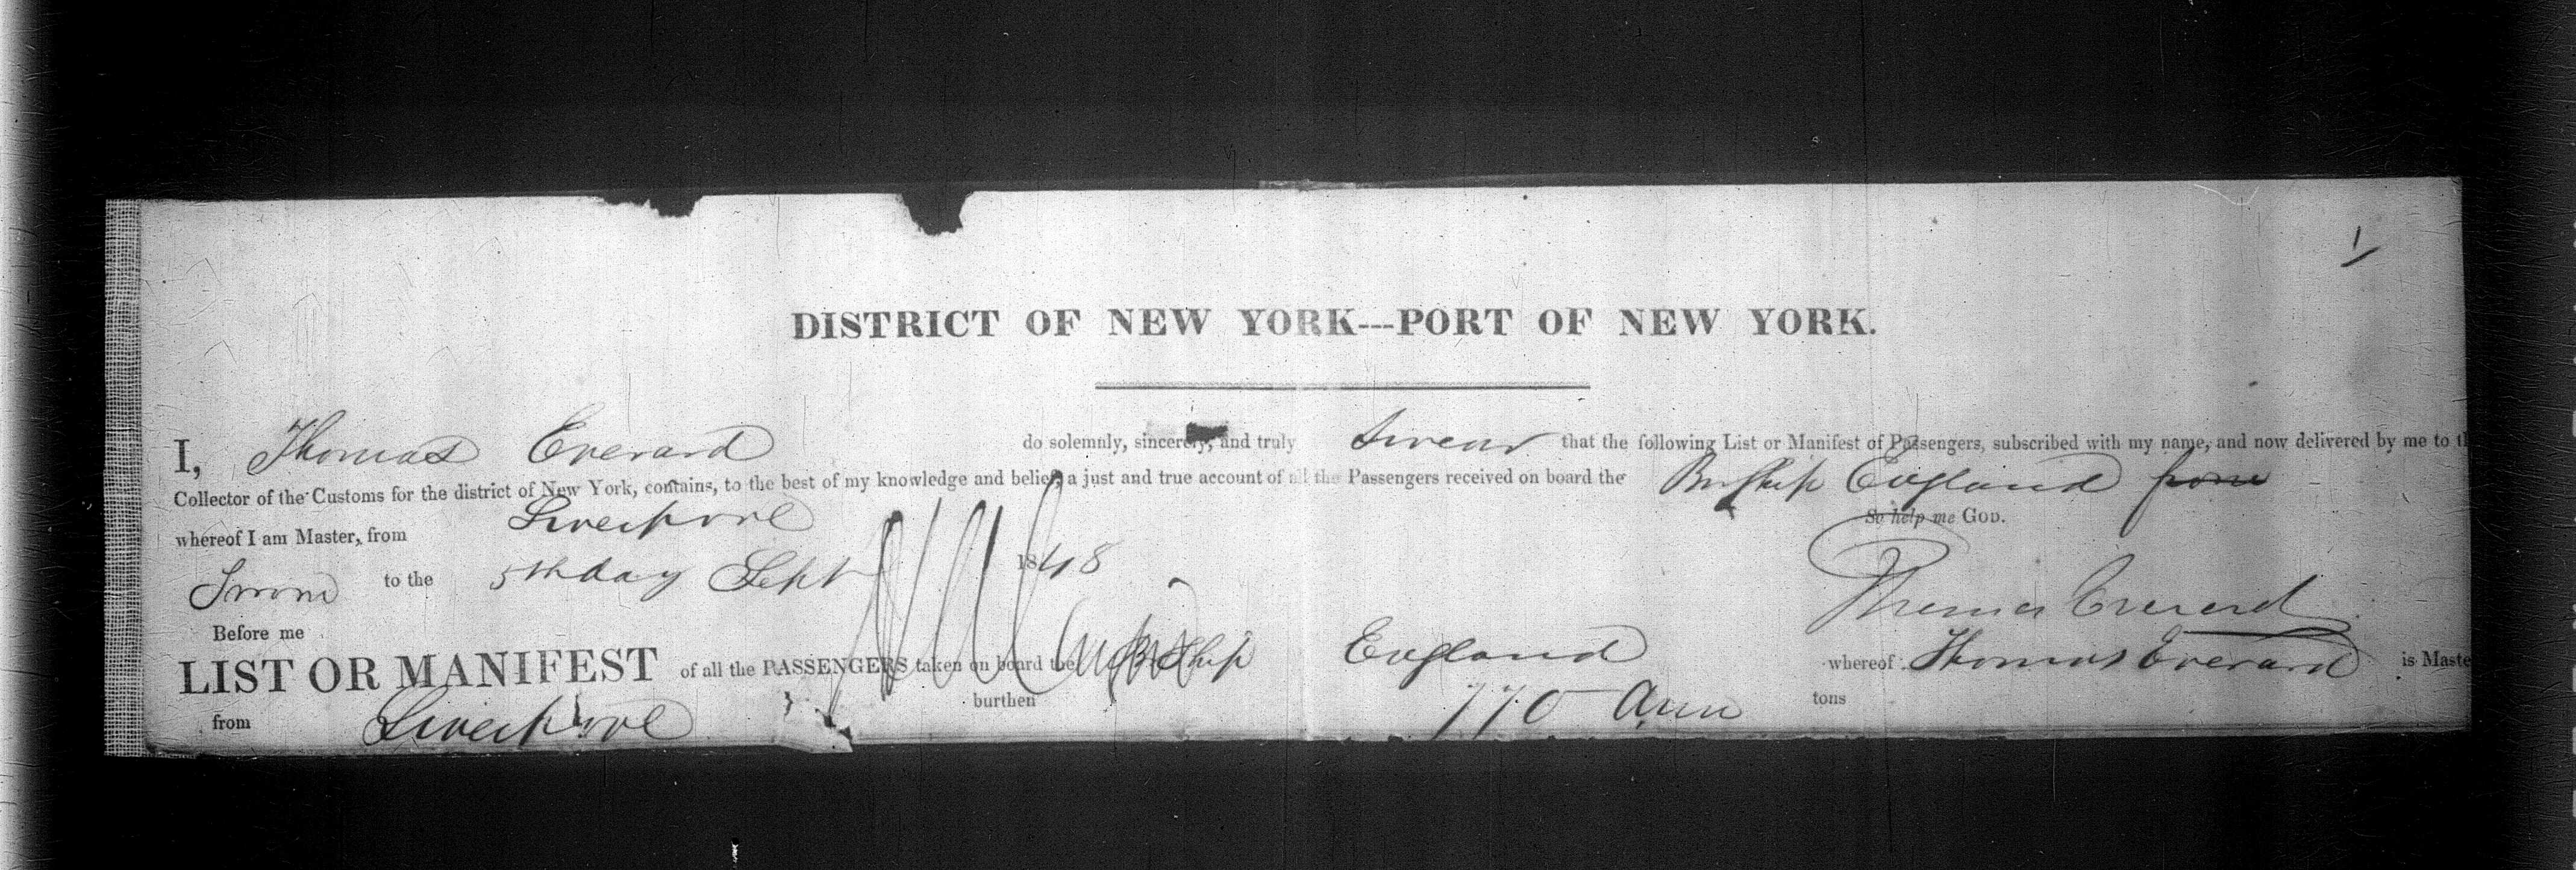 1
DISTRICT OF NEW YORK---PORT OF NEW YORK.
I, Thomas Everard do solemnly, sincerely, and truly swear that the following List or Manifest of Passengers, subscribed with my name, and now delivered by me to th
Collector of the Customs for the district of New York, contains, to the best of my knowledge and belief, a just and true account of all the Passengers received on board the Br Ship England from
whereof I am Master, from Liverpool So help me GOD.
Sworn to the 5th day Sept 1848 Thomas Everard
Before me
LIST OR MANIFEST of all the PASSENGERS taken on board the Br Ship England whereof Thomas Everard is Maste
from Liverpool burthen 770 tons